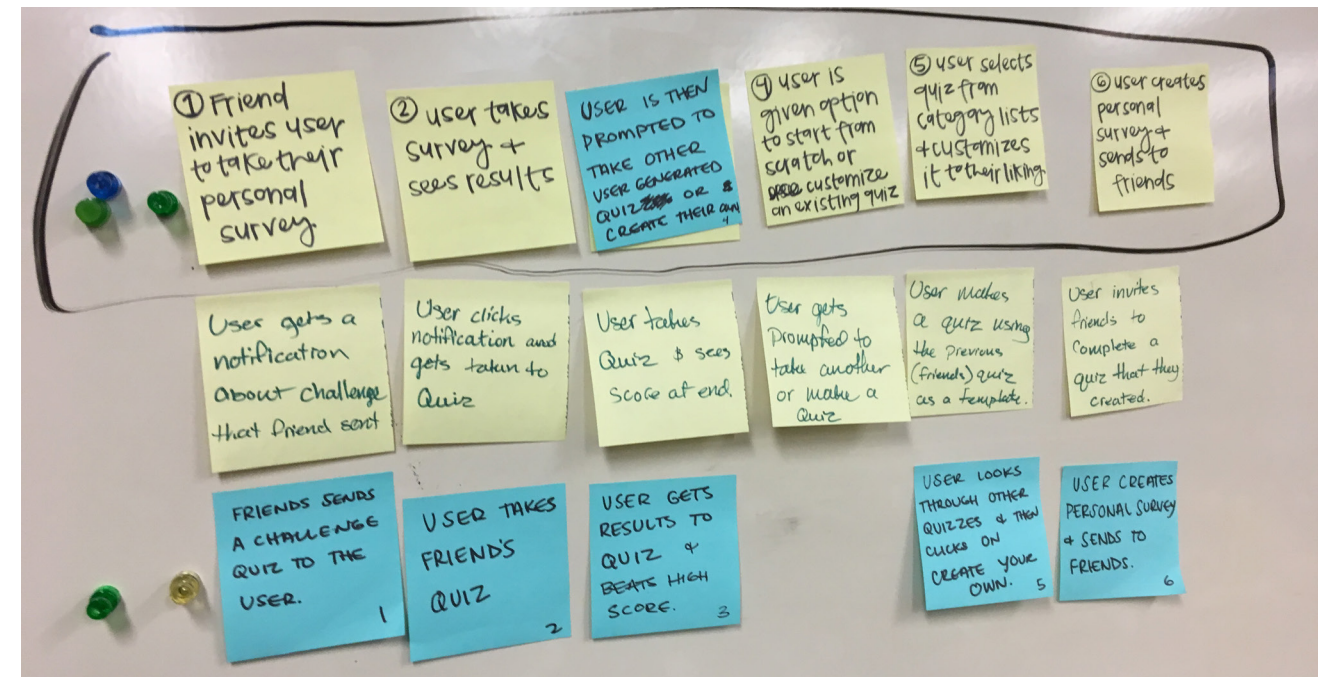 ① Friend
invites user
to take their
personal
survey.
② user takes
survey +
sees results
USER IS THEN
PROMPTED TO
TAKE OTHER
USER GENERATED
QUIZ OR
CREATE THEIR OWN
4
④ user is
given option
to start from
scratch or
customize
an existing quiz
⑤ user selects
quiz from
category lists
+ customizes
it to their liking.
⑥ user creates
personal
survey +
sends to
friends
User gets a
notification
about challenge
that friend sent
User clicks
notification and
gets taken to
Quiz
User takes
Quiz & sees
Score at end.
User gets
Prompted to
take another
or make a
Quiz
User makes
a quiz using
the previous
(friends) quiz
as a template.
User invites
friends to
Complete a
quiz that they
created.
FRIENDS SENDS
A CHALLENGE
QUIZ TO THE
USER.
1
USER TAKES
FRIEND'S
QUIZ
2
USER GETS
RESULTS TO
QUIZ &
BEATS HIGH
SCORE.
3
USER LOOKS
THROUGH OTHER
QUIZZES & THEN
CLICKS ON
CREATE YOUR
OWN.
5
USER CREATES
PERSONAL SURVEY
& SENDS TO
FRIENDS.
6